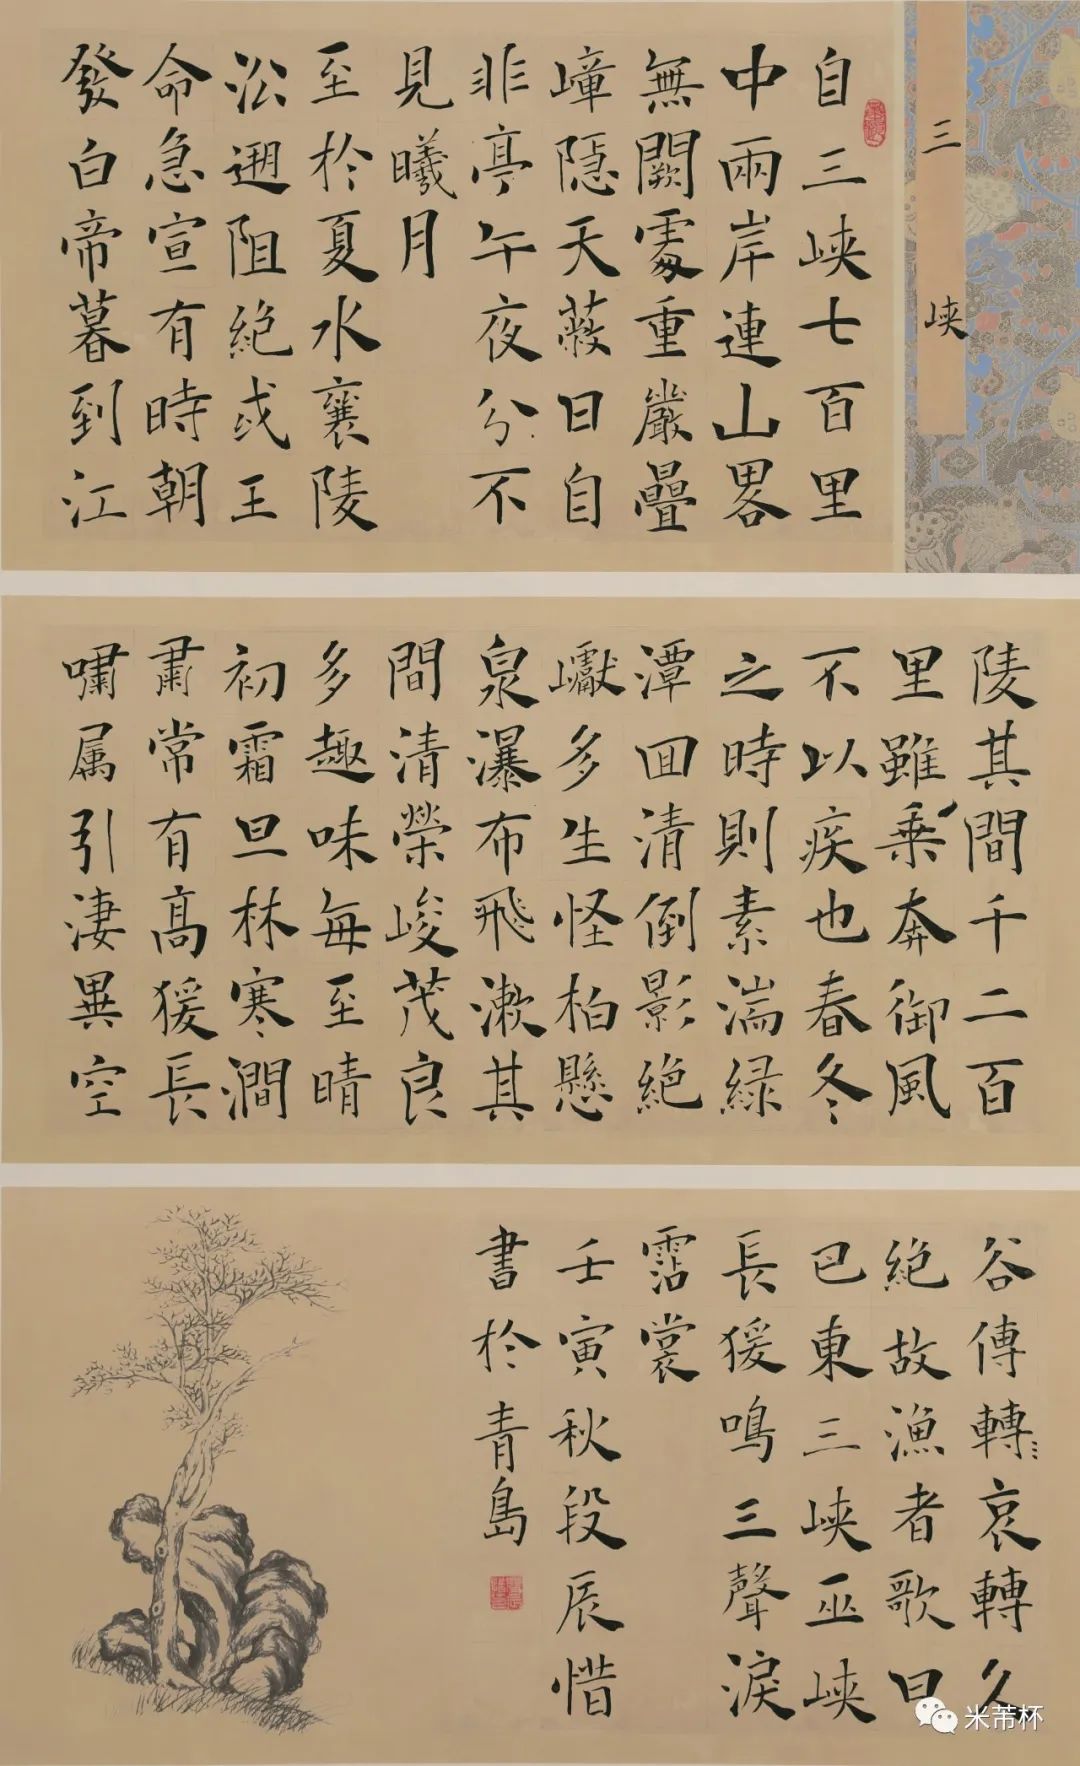 三峡
自三峡七百里
中兩岸連山畧
無闕處重巖疊
嶂隱天蔽日自
非亭午夜分不
見曦月
至於夏水襄陵
沿遡阻絕或王
命急宣有時朝
發白帝暮到江
陵其間千二百
里雖乘奔御風
不以疾也春冬
之時則素湍緑
潭囬清倒影絕
巘多生怪柏懸
泉瀑布飛漱其
間清榮峻茂良
多趣味每至晴
初霜旦林寒澗
肅常有髙猨長
嘯属引淒異空
谷傳轉哀轉久
絕故漁者歌曰
巴東三峡巫峡
長猨鳴三聲淚
霑裳
壬寅秋段辰惜
書於青島
米芾杯